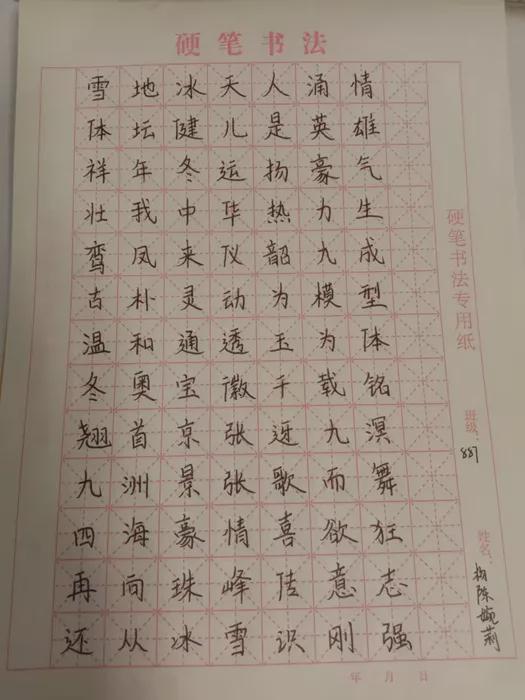 硬笔书法
雪地冰天人涌情
体坛健儿是英雄
祥年冬运扬豪气
壮我中华热力生
鸾凤来仪韶九成
古朴灵动为模型
温和通透玉为体
冬奥宝徽千载铭
翘首京张迓九溟
九洲景张歌而舞
四海豪情喜欲狂
再向珠峰传意志
还从冰雪识刚强
硬笔书法专用纸
班级:887
姓名:杨陈婉莉
年 月 日